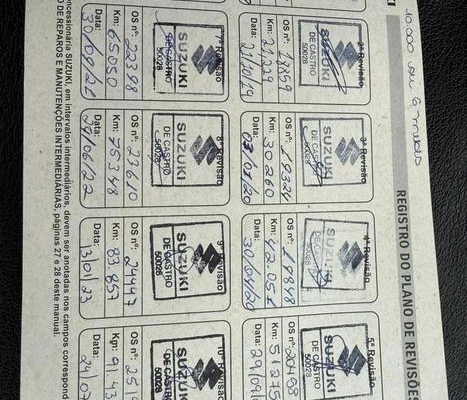 10.000 ou 6 meses
REGISTRO DO PLANO DE REVISÕES
2ª Revisão
SUZUKI
DE CASTRO
50028
OS nº: 18859
Km: 21.229
Data: 21/10/19
3ª Revisão
SUZUKI
DE CASTRO
50028
OS nº: 19324
Km: 30260
Data: 03/01/20
4ª Revisão
SUZUKI
DE CASTRO
50028
OS nº: 19878
Km: 42.051
Data: 30/04/20
5ª Revisão
SUZUKI
DE CASTRO
50028
OS nº: 20498
Km: 51.275
Data: 29/09/
7ª Revisão
SUZUKI
DE CASTRO
50028
OS nº: 22298
Km: 65050
Data: 30/09/21
8ª Revisão
SUZUKI
DE CASTRO
50028
OS nº: 23610
Km: 75348
Data: 29/06/22
9ª Revisão
SUZUKI
DE CASTRO
50028
OS nº: 24447
Km: 83.857
Data: 13/01/23
10ª Revisão
SUZUKI
DE CASTRO
50028
OS nº: 25
Km: 91.43
Data: 24/07
oncessionária SUZUKI, em intervalos intermediários, devem ser anotadas nos campos correspond
DE REPAROS E MANUTENÇÕES INTERMEDIÁRIAS, páginas 27 e 28 deste manual.